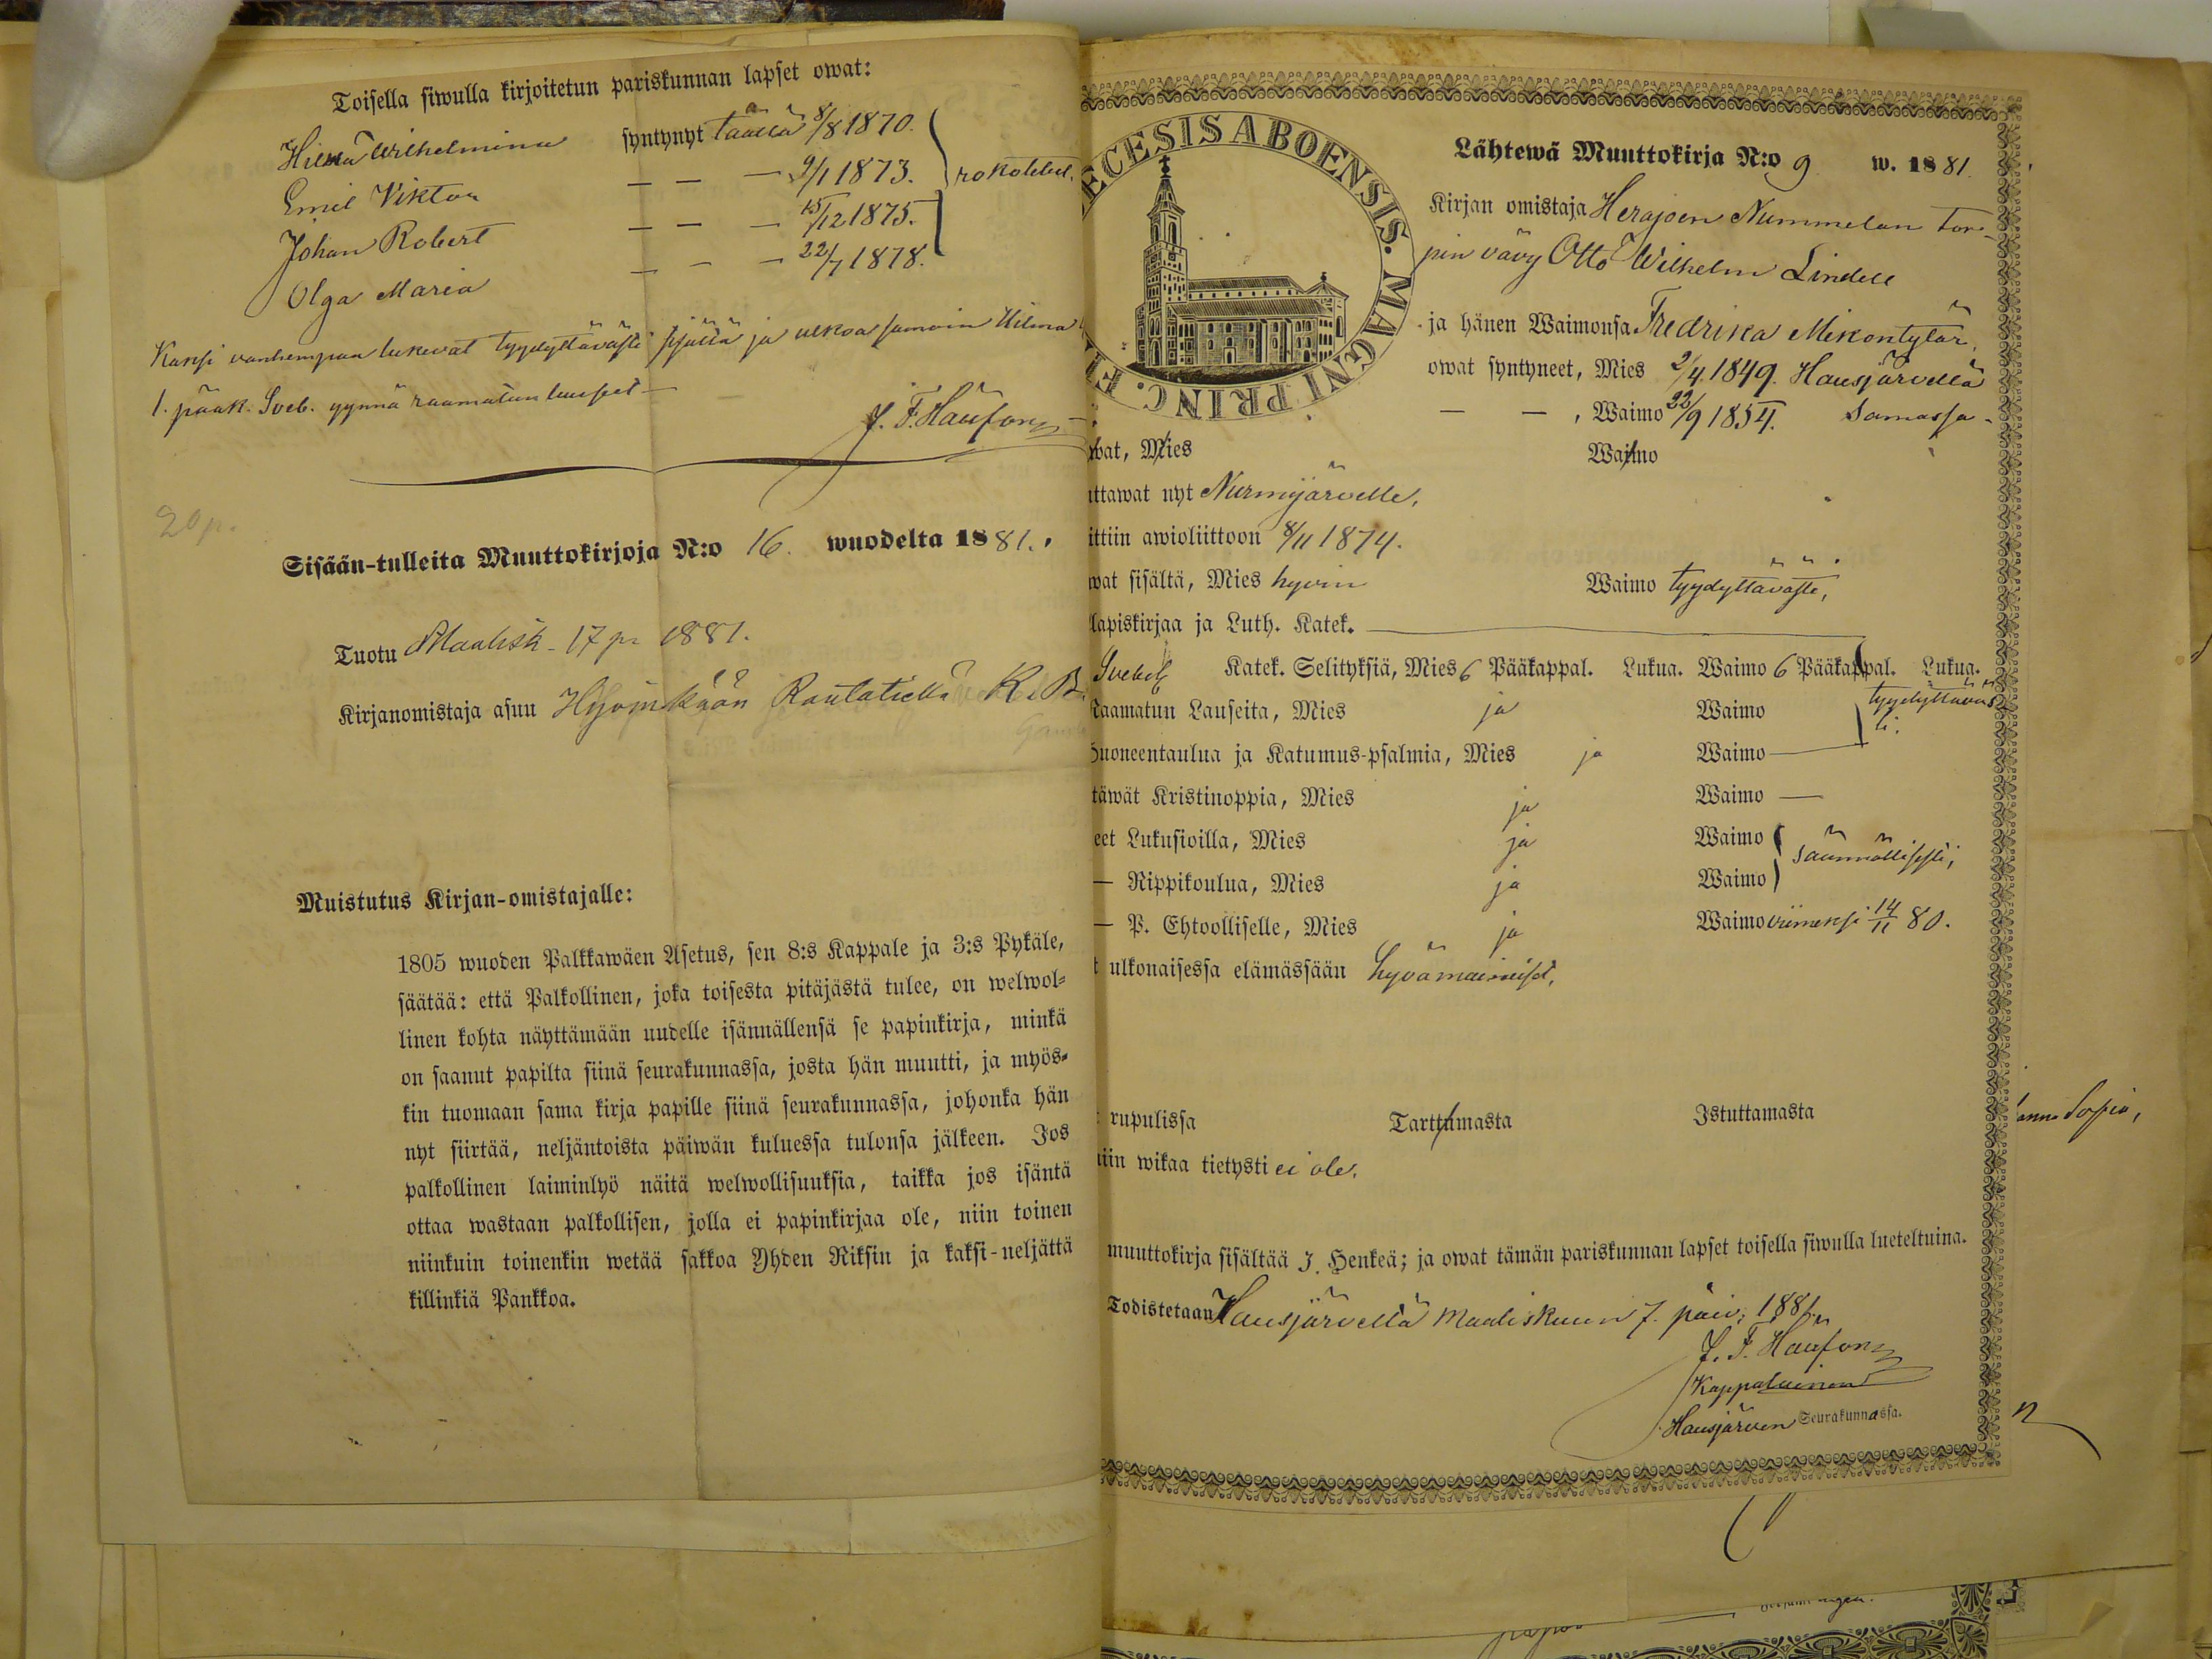 Toisella siwulla kirjoitetun pariskunnan lapset owat:
Hilma Wilhelmina syntynyt täällä 8/8 1870.
Emil Viktor — — — 9/1 1873. rokotetut.
Johan Robert — — — 15/12 1875.
Olga Maria — — — 22/7 1878.
Kaksi vanhempaa lukevat tyydyttävästi sisältä ja ulkoa samoin Hilma
1. pääk. Sveb. ynnä raamatun lauseet —
J. F. Haufon
20 p.
Sisään-tulleita Muuttokirjoja N:o 16. wuodelta 1881.
Tuotu Maalisk. 17 p. 1881.
Kirjanomistaja asuu Hyvinkään Rautatiellä R. B.
Muistutus Kirjan-omistajalle:
1805 wuoden Palkkawäen Asetus, sen 8:s Kappale ja 3:s Pykäle,
säätää: että Palkollinen, joka toisesta pitäjästä tulee, on welwol-
linen kohta näyttämään uudelle isännällensä se papinkirja, minkä
on saanut papilta siinä seurakunnassa, josta hän muutti, ja myös-
kin tuomaan sama kirja papille siinä seurakunnassa, johonka hän
nyt siirtää, neljäntoista päiwän kuluessa tulonsa jälkeen. Jos
palkollinen laiminlyö näitä welwollisuuksia, taikka jos isäntä
ottaa wastaan palkollisen, jolla ei papinkirjaa ole, niin toinen
niinkuin toinenkin wetää sakkoa Yhden Riksin ja kaksi-neljättä
killinkiä Pankkoa.
ECESIS ABOENSIS. MAGNI PRINC. FI
Lähtewä Muuttokirja N:o 9 w. 1881.
Kirjan omistaja Herajoen Nummelan tor-
pin vävy Otto Wilhelm Lindell
ja hänen Waimonsa Fredrika Mikontytär,
owat syntyneet, Mies 2/4 1849. Hausjärvellä
— — , Waimo 22/9 1854. Samassa.
wat, Mies Waimo
ttawat nyt Nurmijärvelle,
ittiin awioliittoon 8/11 1874.
wat sisältä, Mies hyvin Waimo tyydyttävästi,
lapiskirjaa ja Luth. Katek.
Svebel. Katek. Selityksiä, Mies 6 Pääkappal. Lukua. Waimo 6 Pääkappal. Lukua.
Raamatun Lauseita, Mies ja Waimo tyydyttäväs
ti.
Huoneentaulua ja Katumus-psalmia, Mies ja Waimo —
täwät Kristinoppia, Mies ja Waimo —
eet Lukusioilla, Mies ja Waimo säännöllisesti,
— Rippikoulua, Mies ja Waimo
— P. Ehtoolliselle, Mies ja Waimo viimeksi 14/11 80.
t ulkonaisessa elämässään hyvämaineiset,
rupulissa Tarttumasta Istuttamasta
iin wikaa tietysti ei ole.
muuttokirja sisältää 3. Henkeä; ja owat tämän pariskunnan lapset toisella siwulla lueteltuina.
Todistetaan Hausjärvellä Maaliskuun 7. päiv. 1881.
J. F. Haufon
Kappalainen
Hausjärven Seurakunnassa.
anna Sofia,